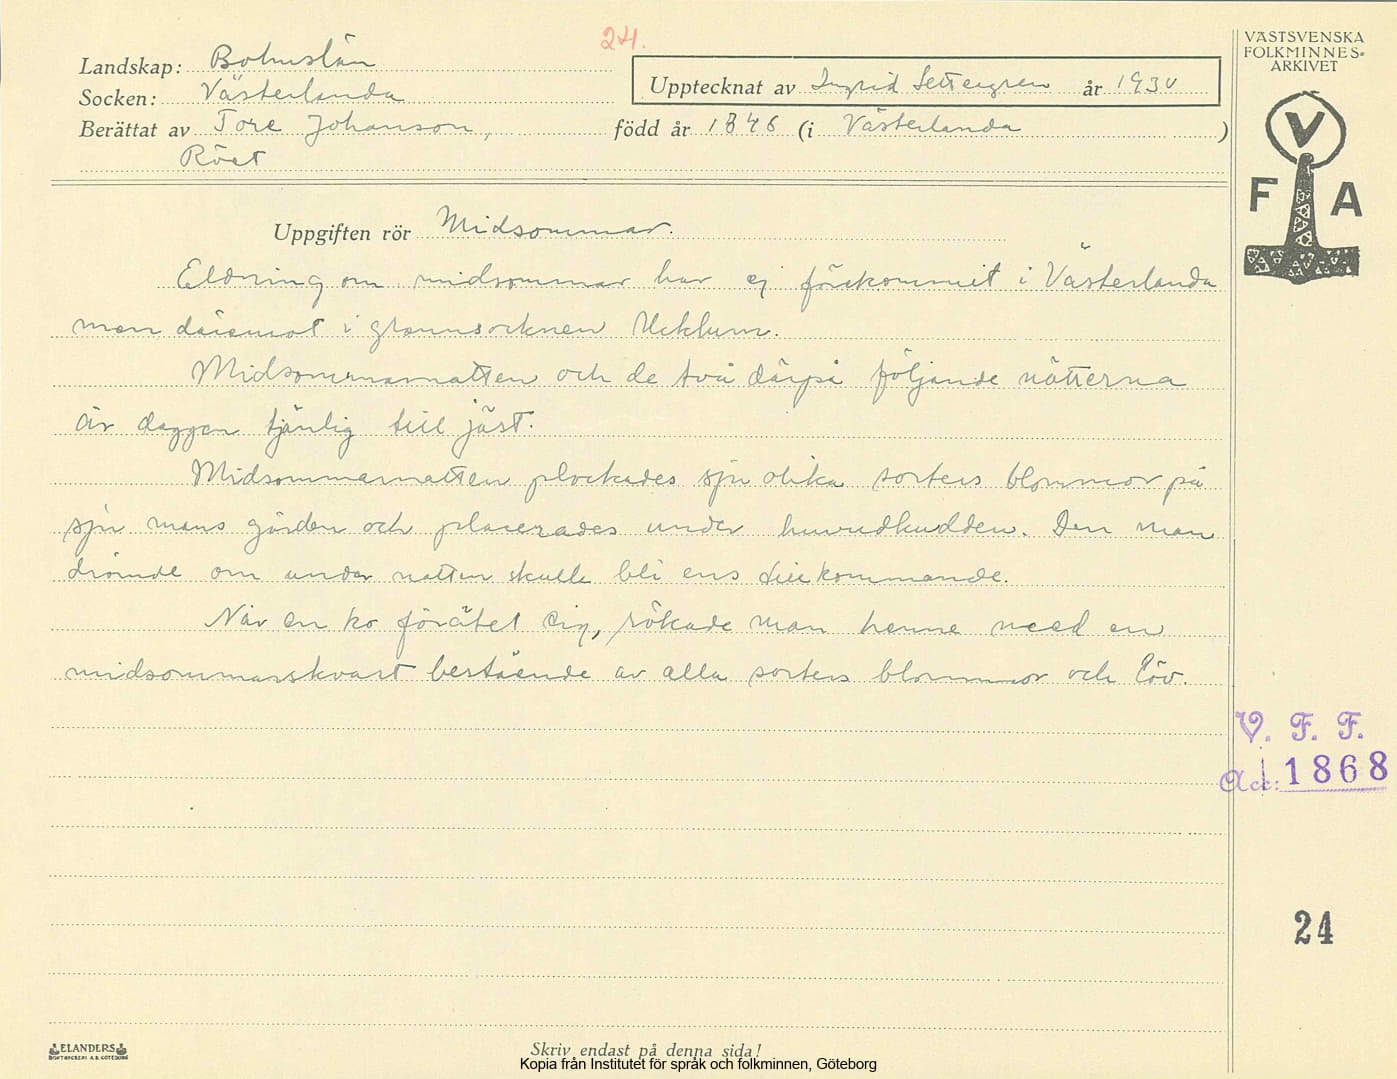 24.
Landskap: Bohuslän
Socken: Västerlanda
Upptecknat av Ingrid Settergren år 1930
Berättat av Tore Johanson, född år 1846 (i Västerlanda )
Röet
VÄSTSVENSKA
FOLKMINNES-
ARKIVET
V
F A
Uppgiften rör Midsommar.
Eldning om midsommar har ej förekommit i Västerlanda
men däremot i grannsocknen Ucklum.
Midsommarnatten och de två därpå följande nätterna
är daggen tjänlig till jäst.
Midsommarnatten plockades sju olika sorters blommor på
sju mans gärden och placerades under huvudkudden. Den man
drömde om under natten skulle bli ens tillkommande.
När en ko förätet sig, rökade man henne med en
midsommarskvast bestående av alla sorters blommor och löv.
V. F. F.
Acc: 1868
24
ELANDERS
BOKTRYCKERI A.B. GÖTEBORG
Skriv endast på denna sida!
Kopia från Institutet för språk och folkminnen, Göteborg